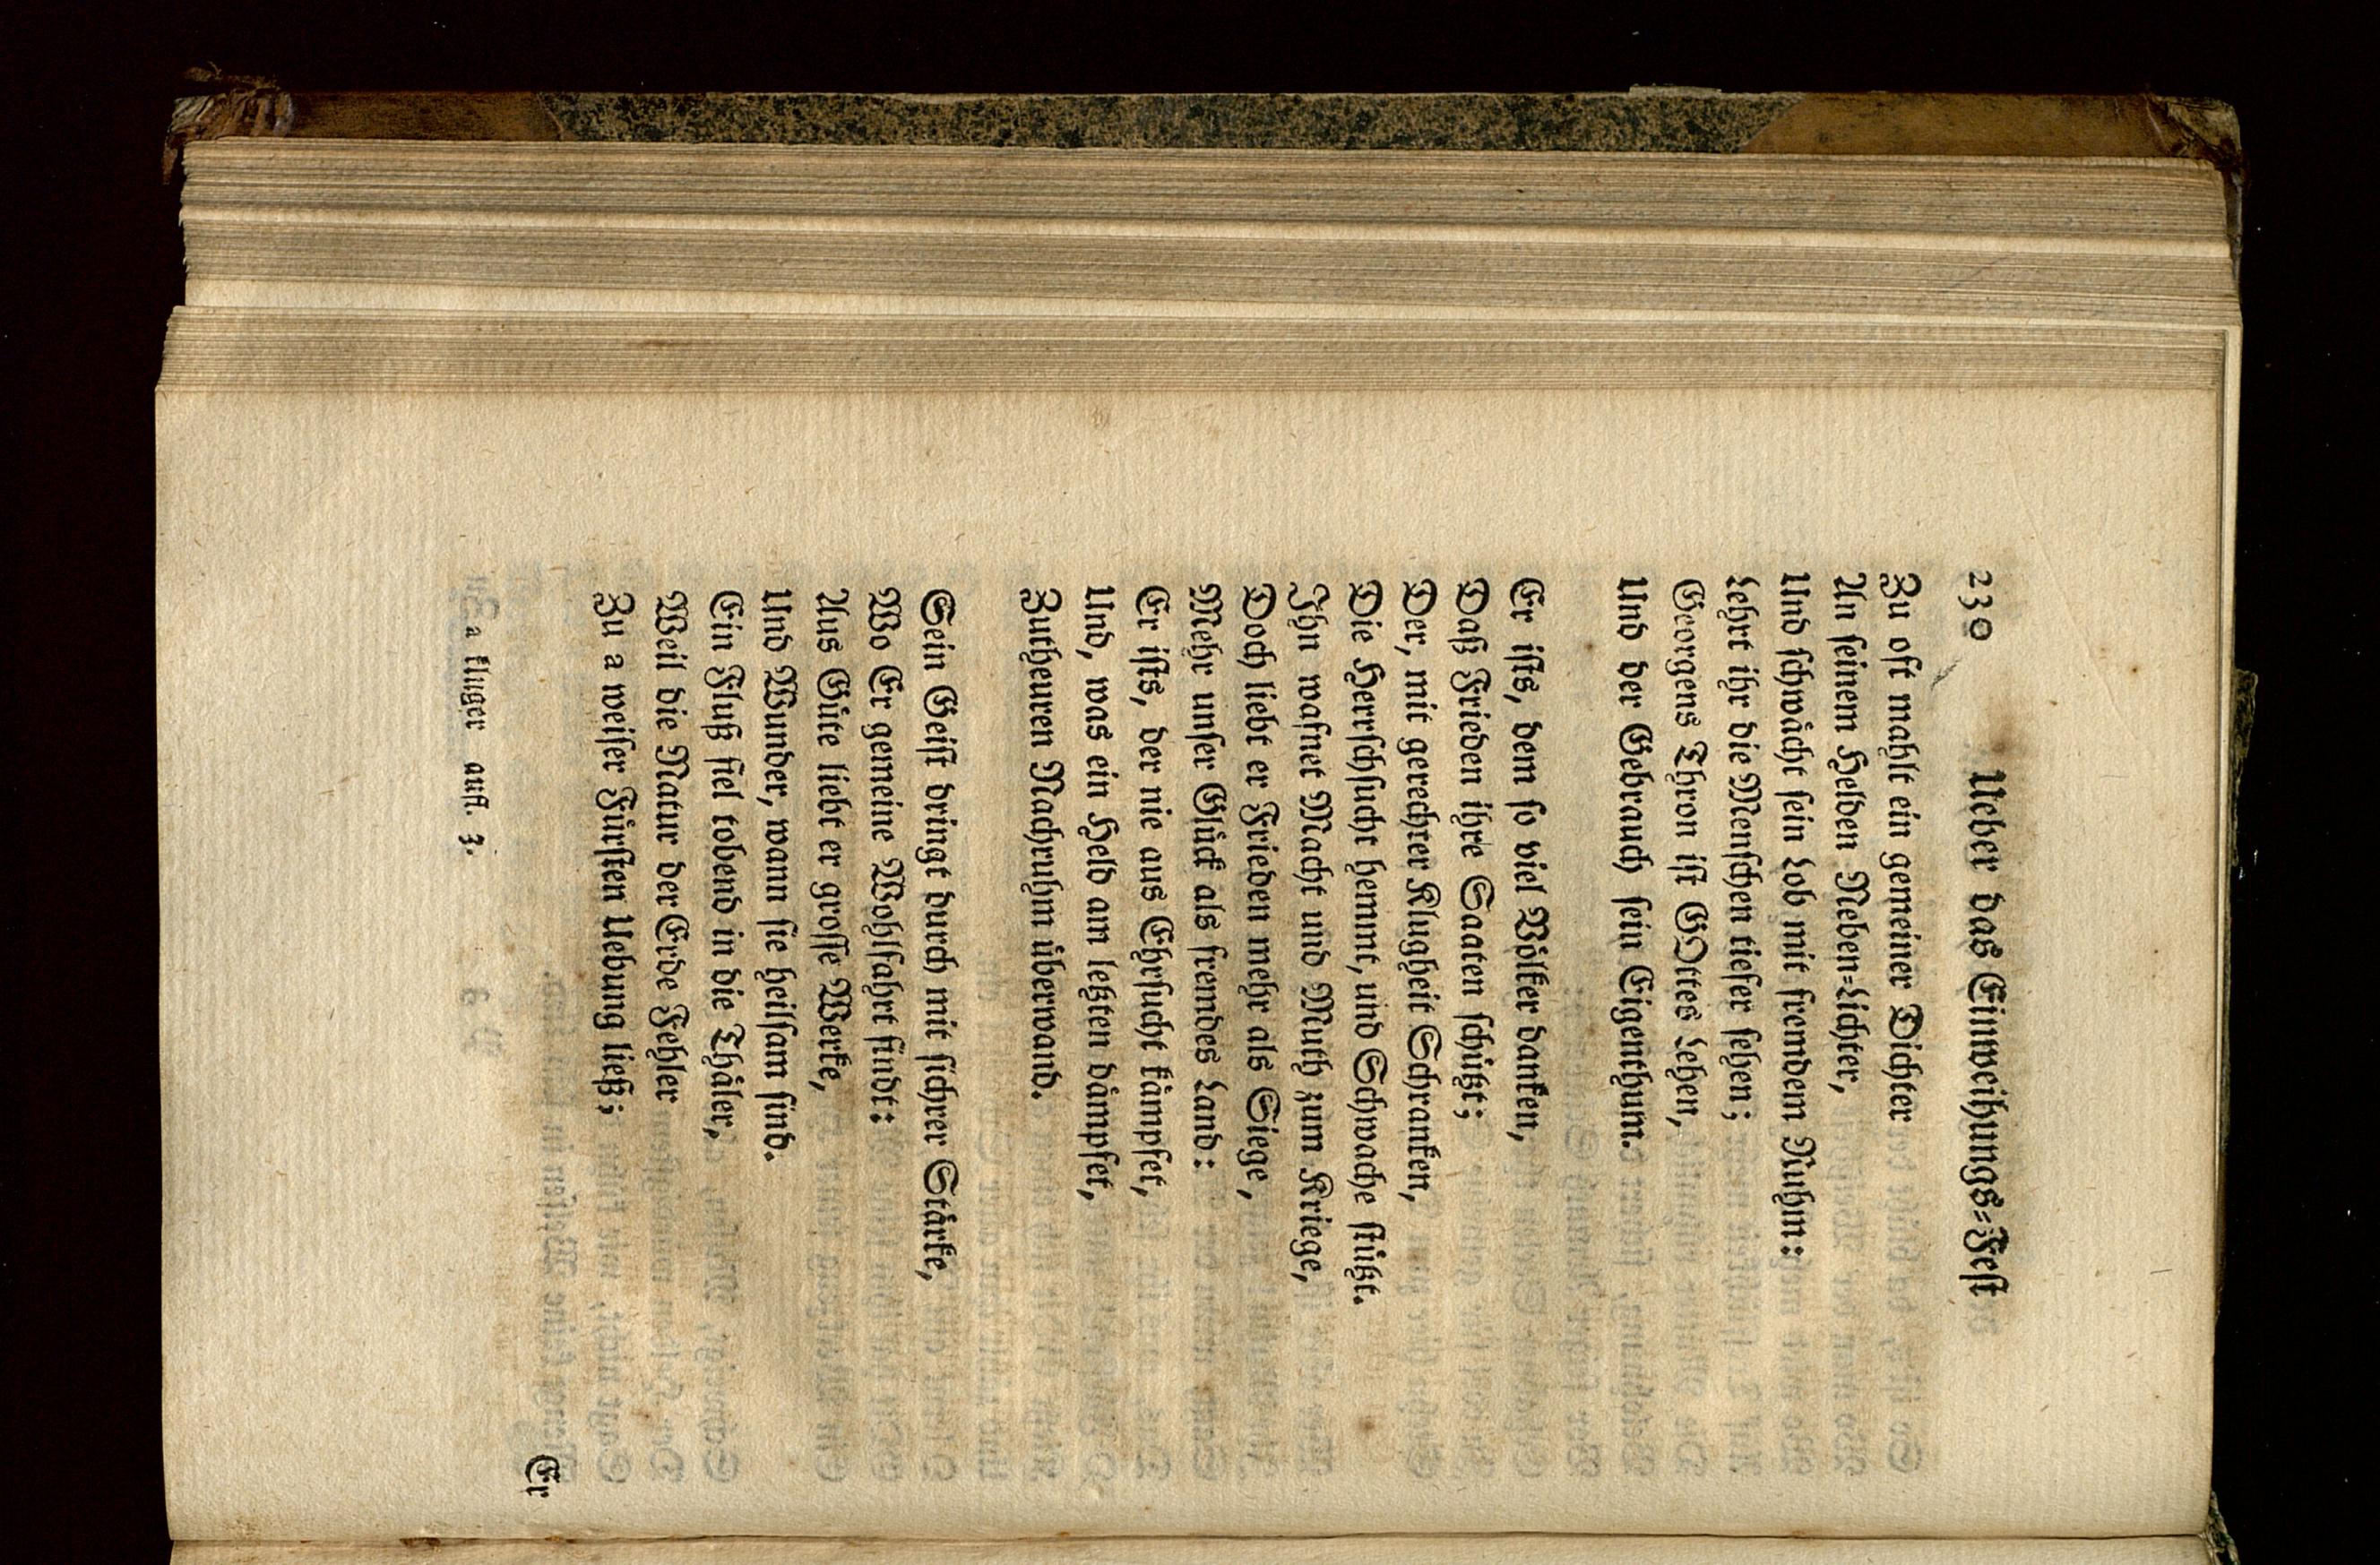 230 Ueber das Einweihungs-Fest
Zu oft mahlt ein gemeiner Dichter
An seinem Helden Neben-Lichter,
Und schwächt sein Lob mit fremdem Ruhm:
Lehrt ihr die Menschen tiefer sehen;
Georgens Thron ist GOttes Lehen,
Und der Gebrauch sein Eigenthum.
Er ists, dem so viel Völker danken,
Daß Frieden ihre Saaten schüzt;
Der, mit gerechter Klugheit Schranken,
Die Herrschsucht hemmt, und Schwache stüzt.
Ihn wafnet Macht und Muth zum Kriege,
Doch liebt er Frieden mehr als Siege,
Mehr unser Glück als fremdes Land:
Er ists, der nie aus Ehrsucht kämpfet,
Und, was ein Held am lezten dämpfet,
Zutheuren Nachruhm überwand.
Sein Geist dringt durch mit sichrer Stärke,
Wo Er gemeine Wohlfahrt findt:
Aus Güte liebt er grosse Werke,
Und Wunder, wann sie heilsam sind.
Ein Fluß fiel tobend in die Thäler,
Weil die Natur der Erde Fehler
Zu a weiser Fürsten Uebung ließ;
Er
a kluger aufl. 3.